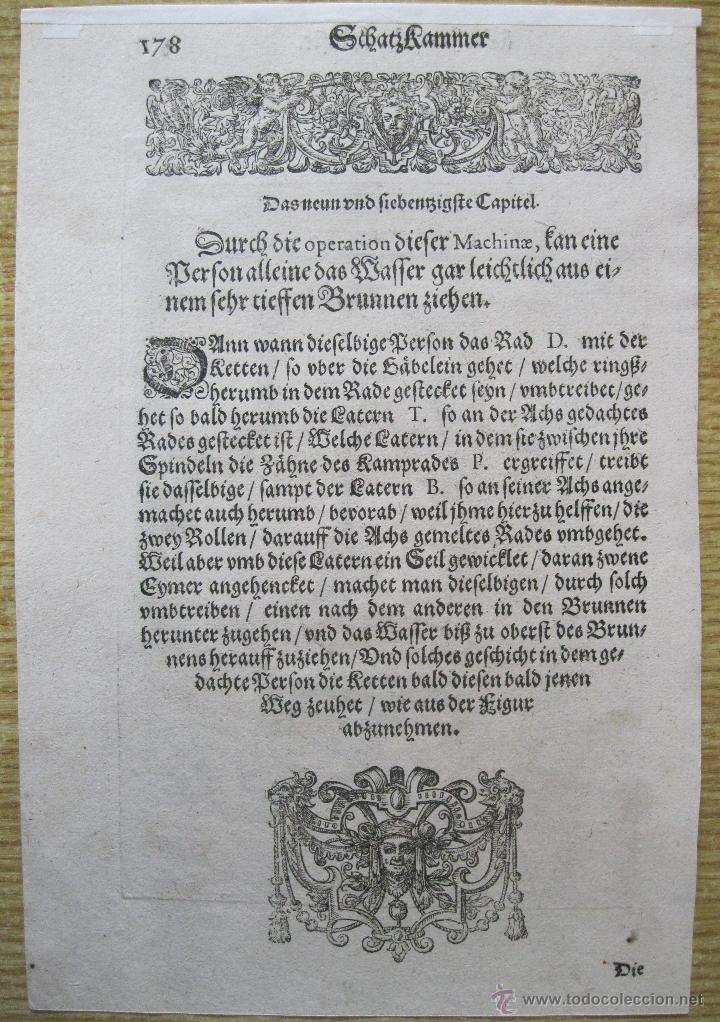 178
SchatzKammer
Das neun vnd siebentzigste Capitel.
Durch die operation dieser Machinæ, kan eine
Person alleine das Wasser gar leichtlich aus ei-
nem sehr tieffen Brunnen ziehen.
DAnn wann dieselbige Person das Rad D. mit der
Ketten / so vber die Gäbelein gehet / welche ringß-
herumb in dem Rade gestecket seyn / vmbtreibet / ge-
het so bald herumb die Latern T. so an der Achs gedachtes
Rades gestecket ist / Welche Latern / in dem sie zwischen jhre
Spindeln die Zähne des Kamprades P. ergreiffet / treibt
sie dasselbige / sampt der Latern B. so an seiner Achs ange-
machet auch herumb / bevorab / weil jhme hierzu helffen / die
zwey Rollen / darauff die Achs gemeltes Rades vmbgehet.
Weil aber vmb diese Latern ein Seil gewicklet / daran zwene
Eymer angehencket / machet man dieselbigen / durch solch
vmbtreiben / einen nach dem anderen in den Brunnen
herunter zugehen / vnd das Wasser biß zu oberst des Brun-
nens herauff zuziehen / Vnd solches geschicht in dem ge-
dachte Person die Ketten bald diesen bald jenen
Weg zeuhet / wie aus der Figur
abzunehmen.
Die
© www.todocoleccion.net